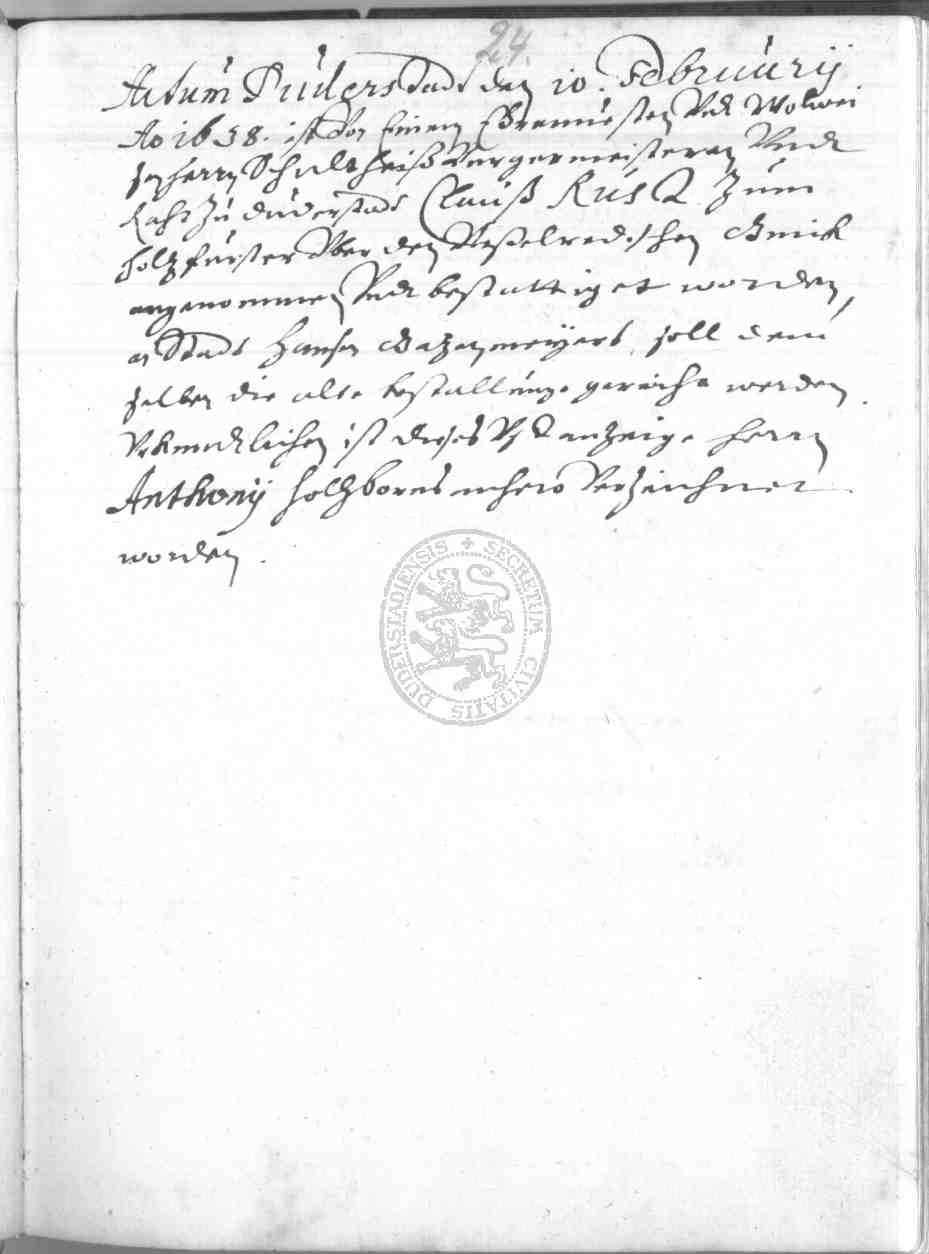 24.
Actum Duderstadt den 10. Februarij
Ao 1638. ist von Einem Ehrenvesten Vndt Wolwei
zen herrn Schultheiß Burgermeisteren Vndt
Raht zu duderstadt Clauß Rust Zum
holtzfürster Vber den Neßelredischen
angenommen Vndt bestattiget worden,
an Stadt Hansen soll dem
selben die alte bestallunge gereicht werden.
Vrkundtlichen ist dieses anzeige herrn
Anthonij holtzborns anhero Verzeichnet
worden.
SECRETUM CIVITATIS DUDERSTADIENSIS